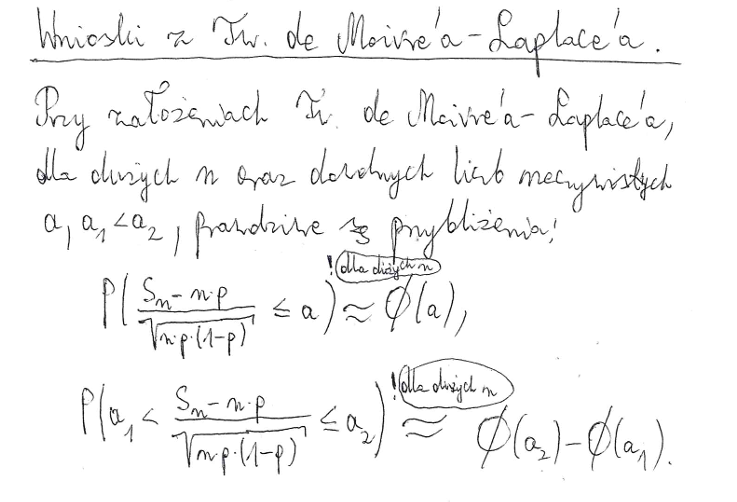 Wnioski z Tw. de Moivre'a-Laplace'a.
Przy założeniach Tw. de Moivre'a-Laplace'a,
dla dużych n oraz dowolnych liczb rzeczywistych
a, a₁<a₂, prawdziwe są przybliżenia:
! dla dużych n
P( (Sₙ - n·p) / √(n·p·(1-p)) ≤ a ) ≈ Φ(a),
! dla dużych n
P( a₁ < (Sₙ - n·p) / √(n·p·(1-p)) ≤ a₂ ) ≈ Φ(a₂) - Φ(a₁).